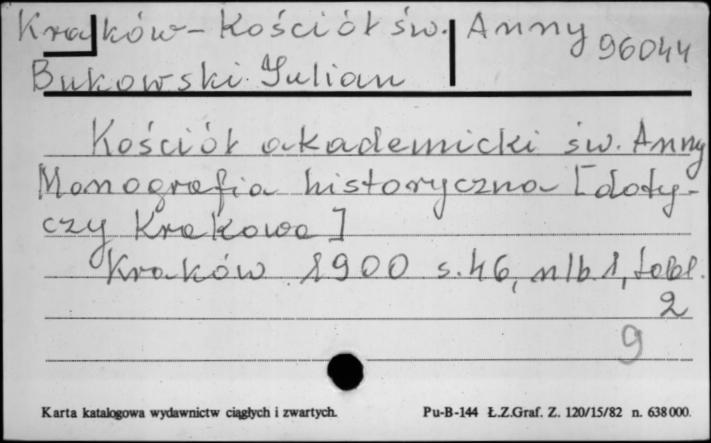 Kraków - Kościół św. Anny
96044
Bukowski Julian
Kościół akademicki św. Anny
Monografia historyczna [doty-
czy Krakowa]
Kraków 1900 s. 46, nlb. 1, tabl.
2
9
Karta katalogowa wydawnictw ciągłych i zwartych. Pu-B-144 Ł.Z.Graf. Z. 120/15/82 n. 638000.